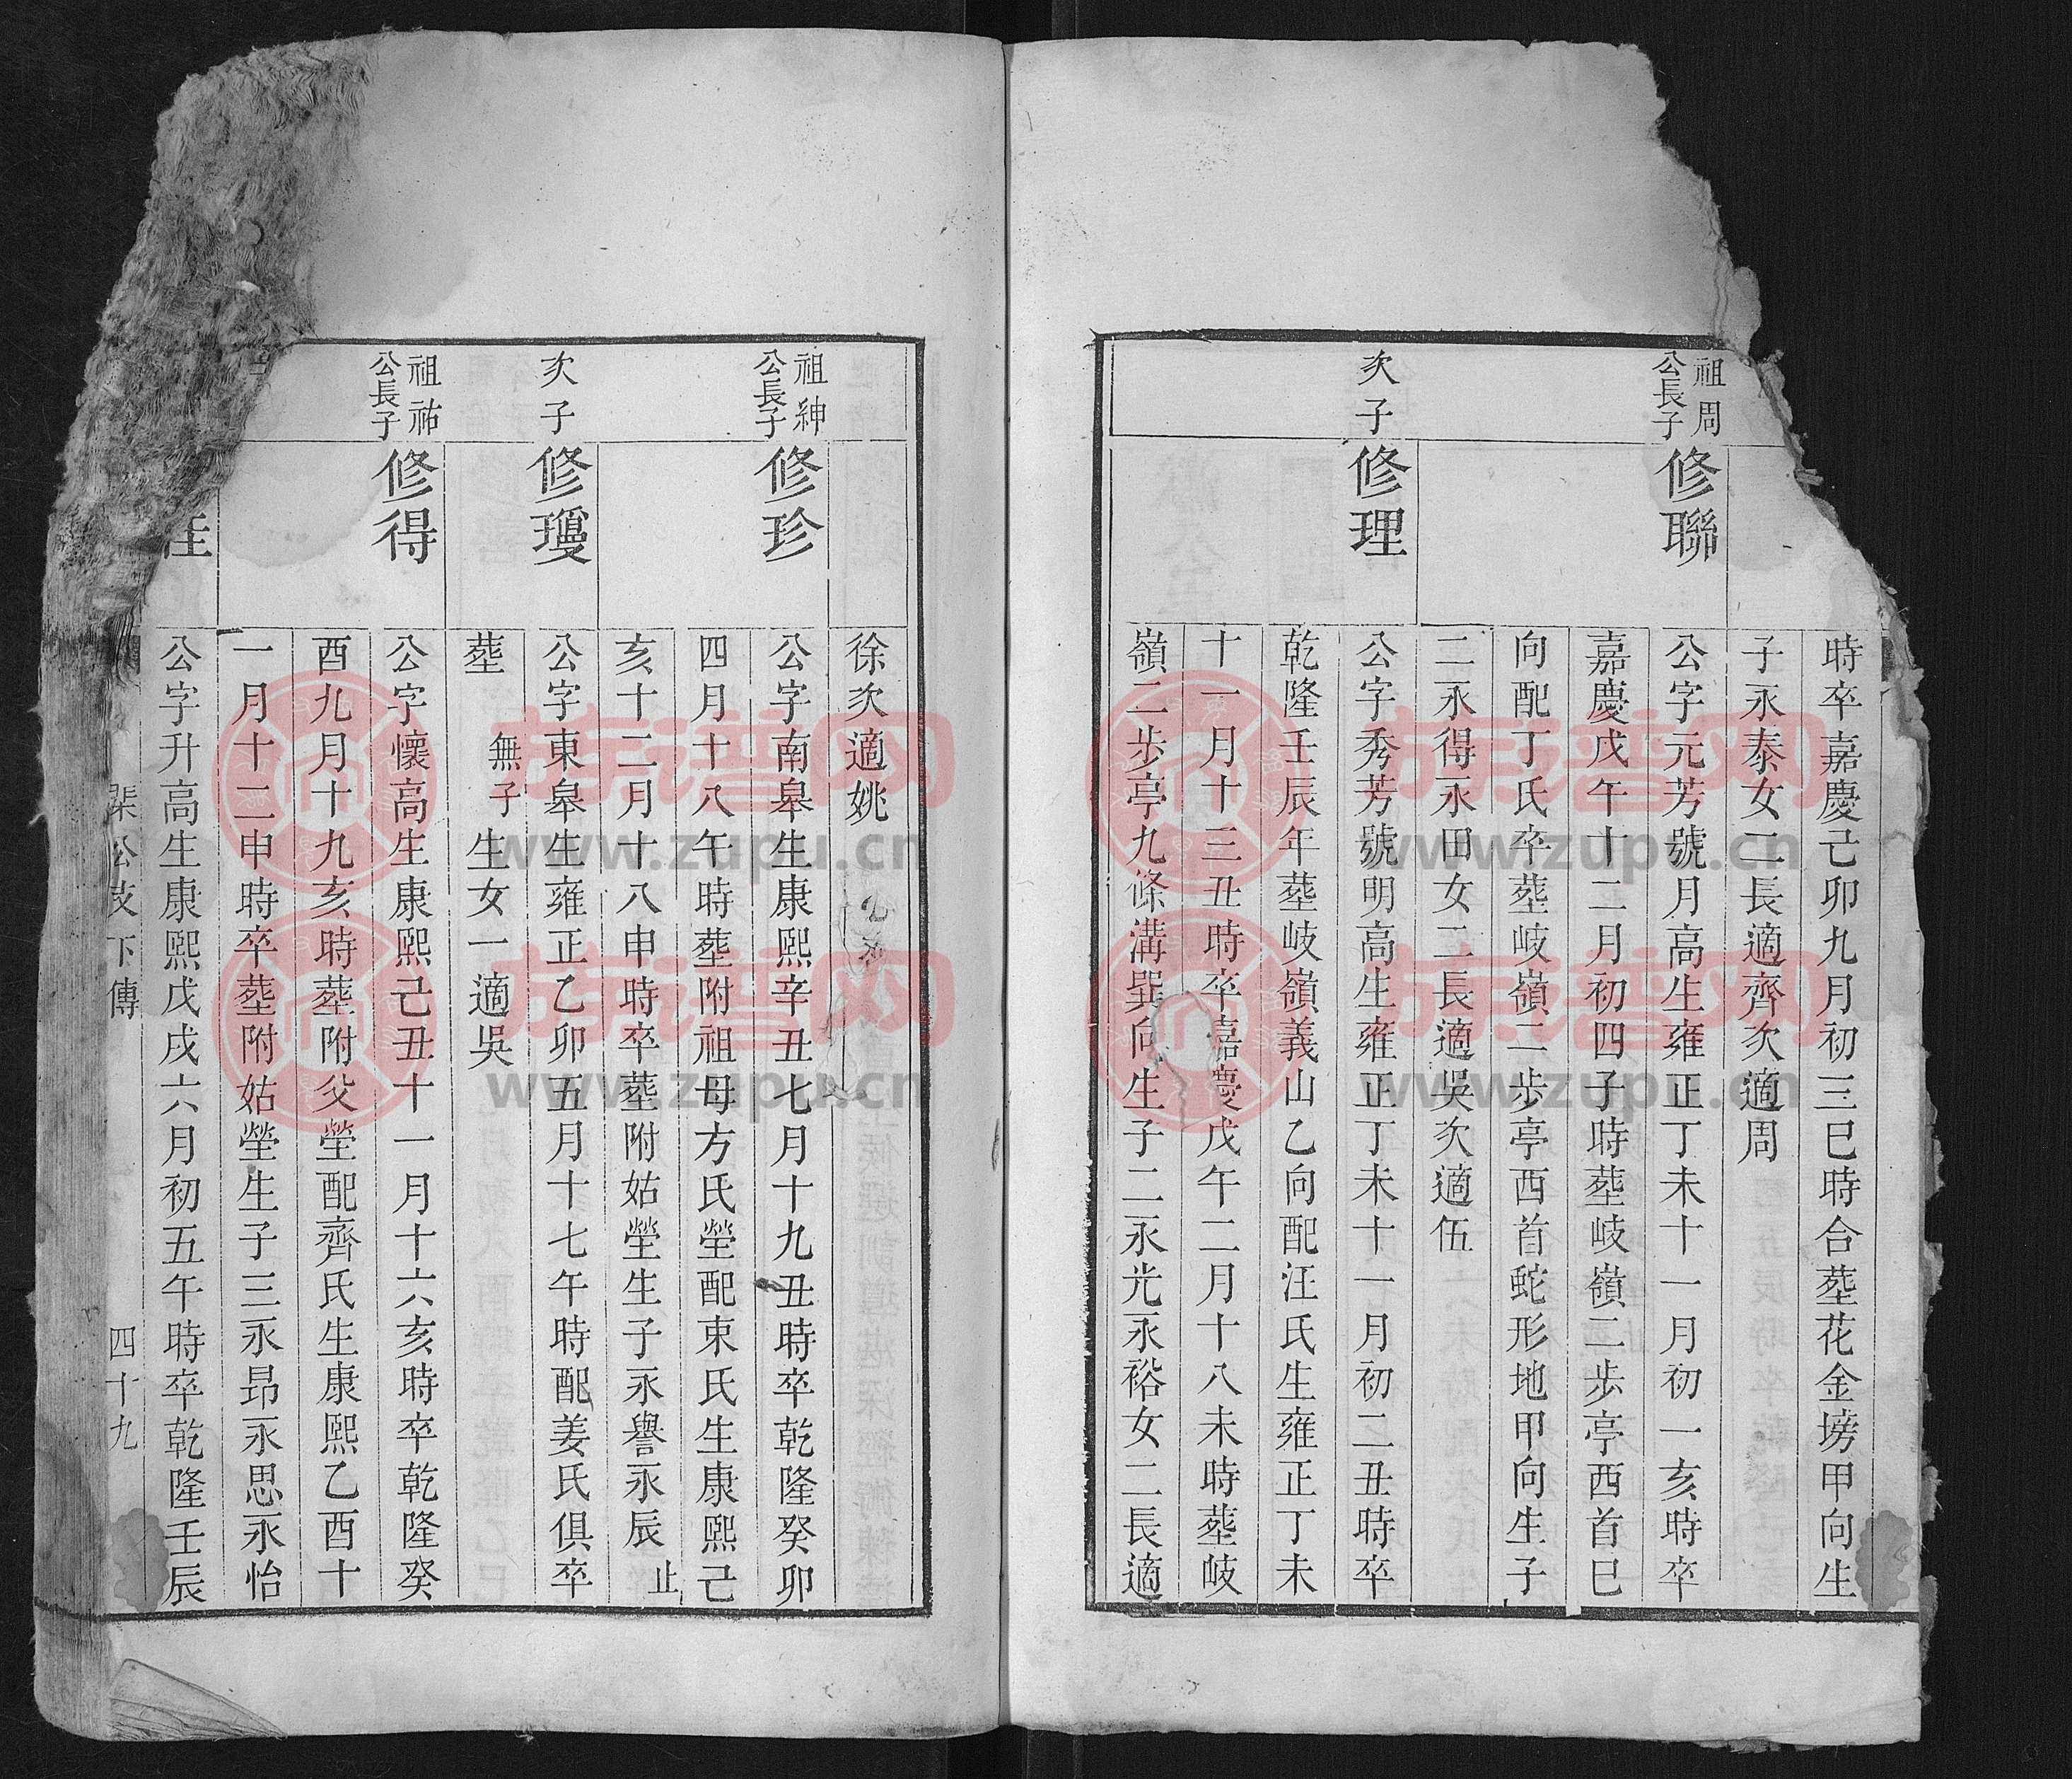 時卒嘉慶己卯九月初三巳時合塟花金塝甲向生
子永泰女二長適齊次適周
祖周
公長子
修聯
公字元芳號月高生雍正丁未十一月初一亥時卒
嘉慶戊午十二月初四子時塟岐嶺二步亭西首巳
向配丁氏卒塟岐嶺二步亭西首蛇形地甲向生子
二永得永田女二長適吳次適伍
次子
修理
公字秀芳號明高生雍正丁未十一月初二丑時卒
乾隆壬辰年塟岐嶺義山乙向配汪氏生雍正丁未
十一月十三丑時卒嘉慶戊午二月十八未時塟岐
嶺二步亭九條溝巽向生子二永光永裕女二長適
徐次適姚
祖紳
公長子
修珍
公字南皋生康熙辛丑七月十九丑時卒乾隆癸卯
四月十八午時塟附祖母方氏塋配束氏生康熙己
亥十二月十八申時卒塟附姑塋生子永譽永辰止
次子
修璦
公字東皋生雍正乙卯五月十七午時配姜氏俱卒
塟 無子生女一適吳
祖祐
公長子
修得
公字懷高生康熙己丑十一月十六亥時卒乾隆癸
酉九月十九亥時塟附父塋配齊氏生康熙乙酉十
一月十二申時卒塟附姑塋生子三永昂永思永怡
公字升高生康熙戊戌六月初五午時卒乾隆壬辰
公支下傳
四十九
族谱网
www.zupu.cn
族谱网
www.zupu.cn
族谱网
www.zupu.cn
族谱网
www.zupu.cn